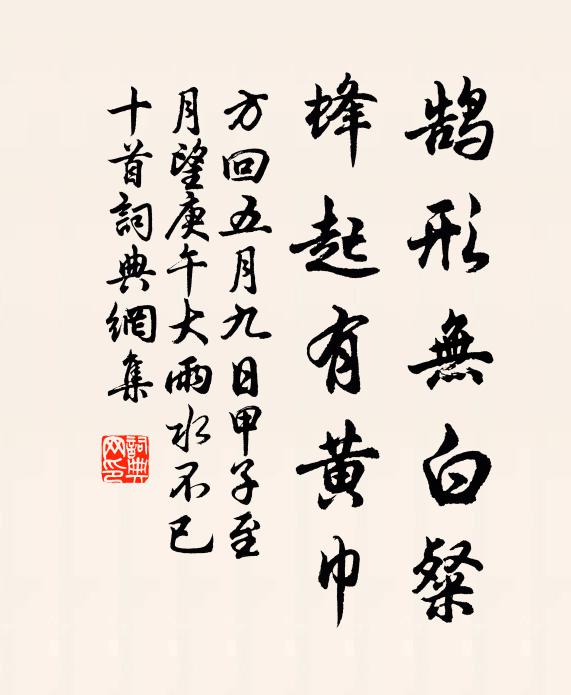 鵠形無白粲
蜂起有黃巾
方回五月九日甲子至
月望庚午大雨水不已
十首詞典網集
詞典
网印